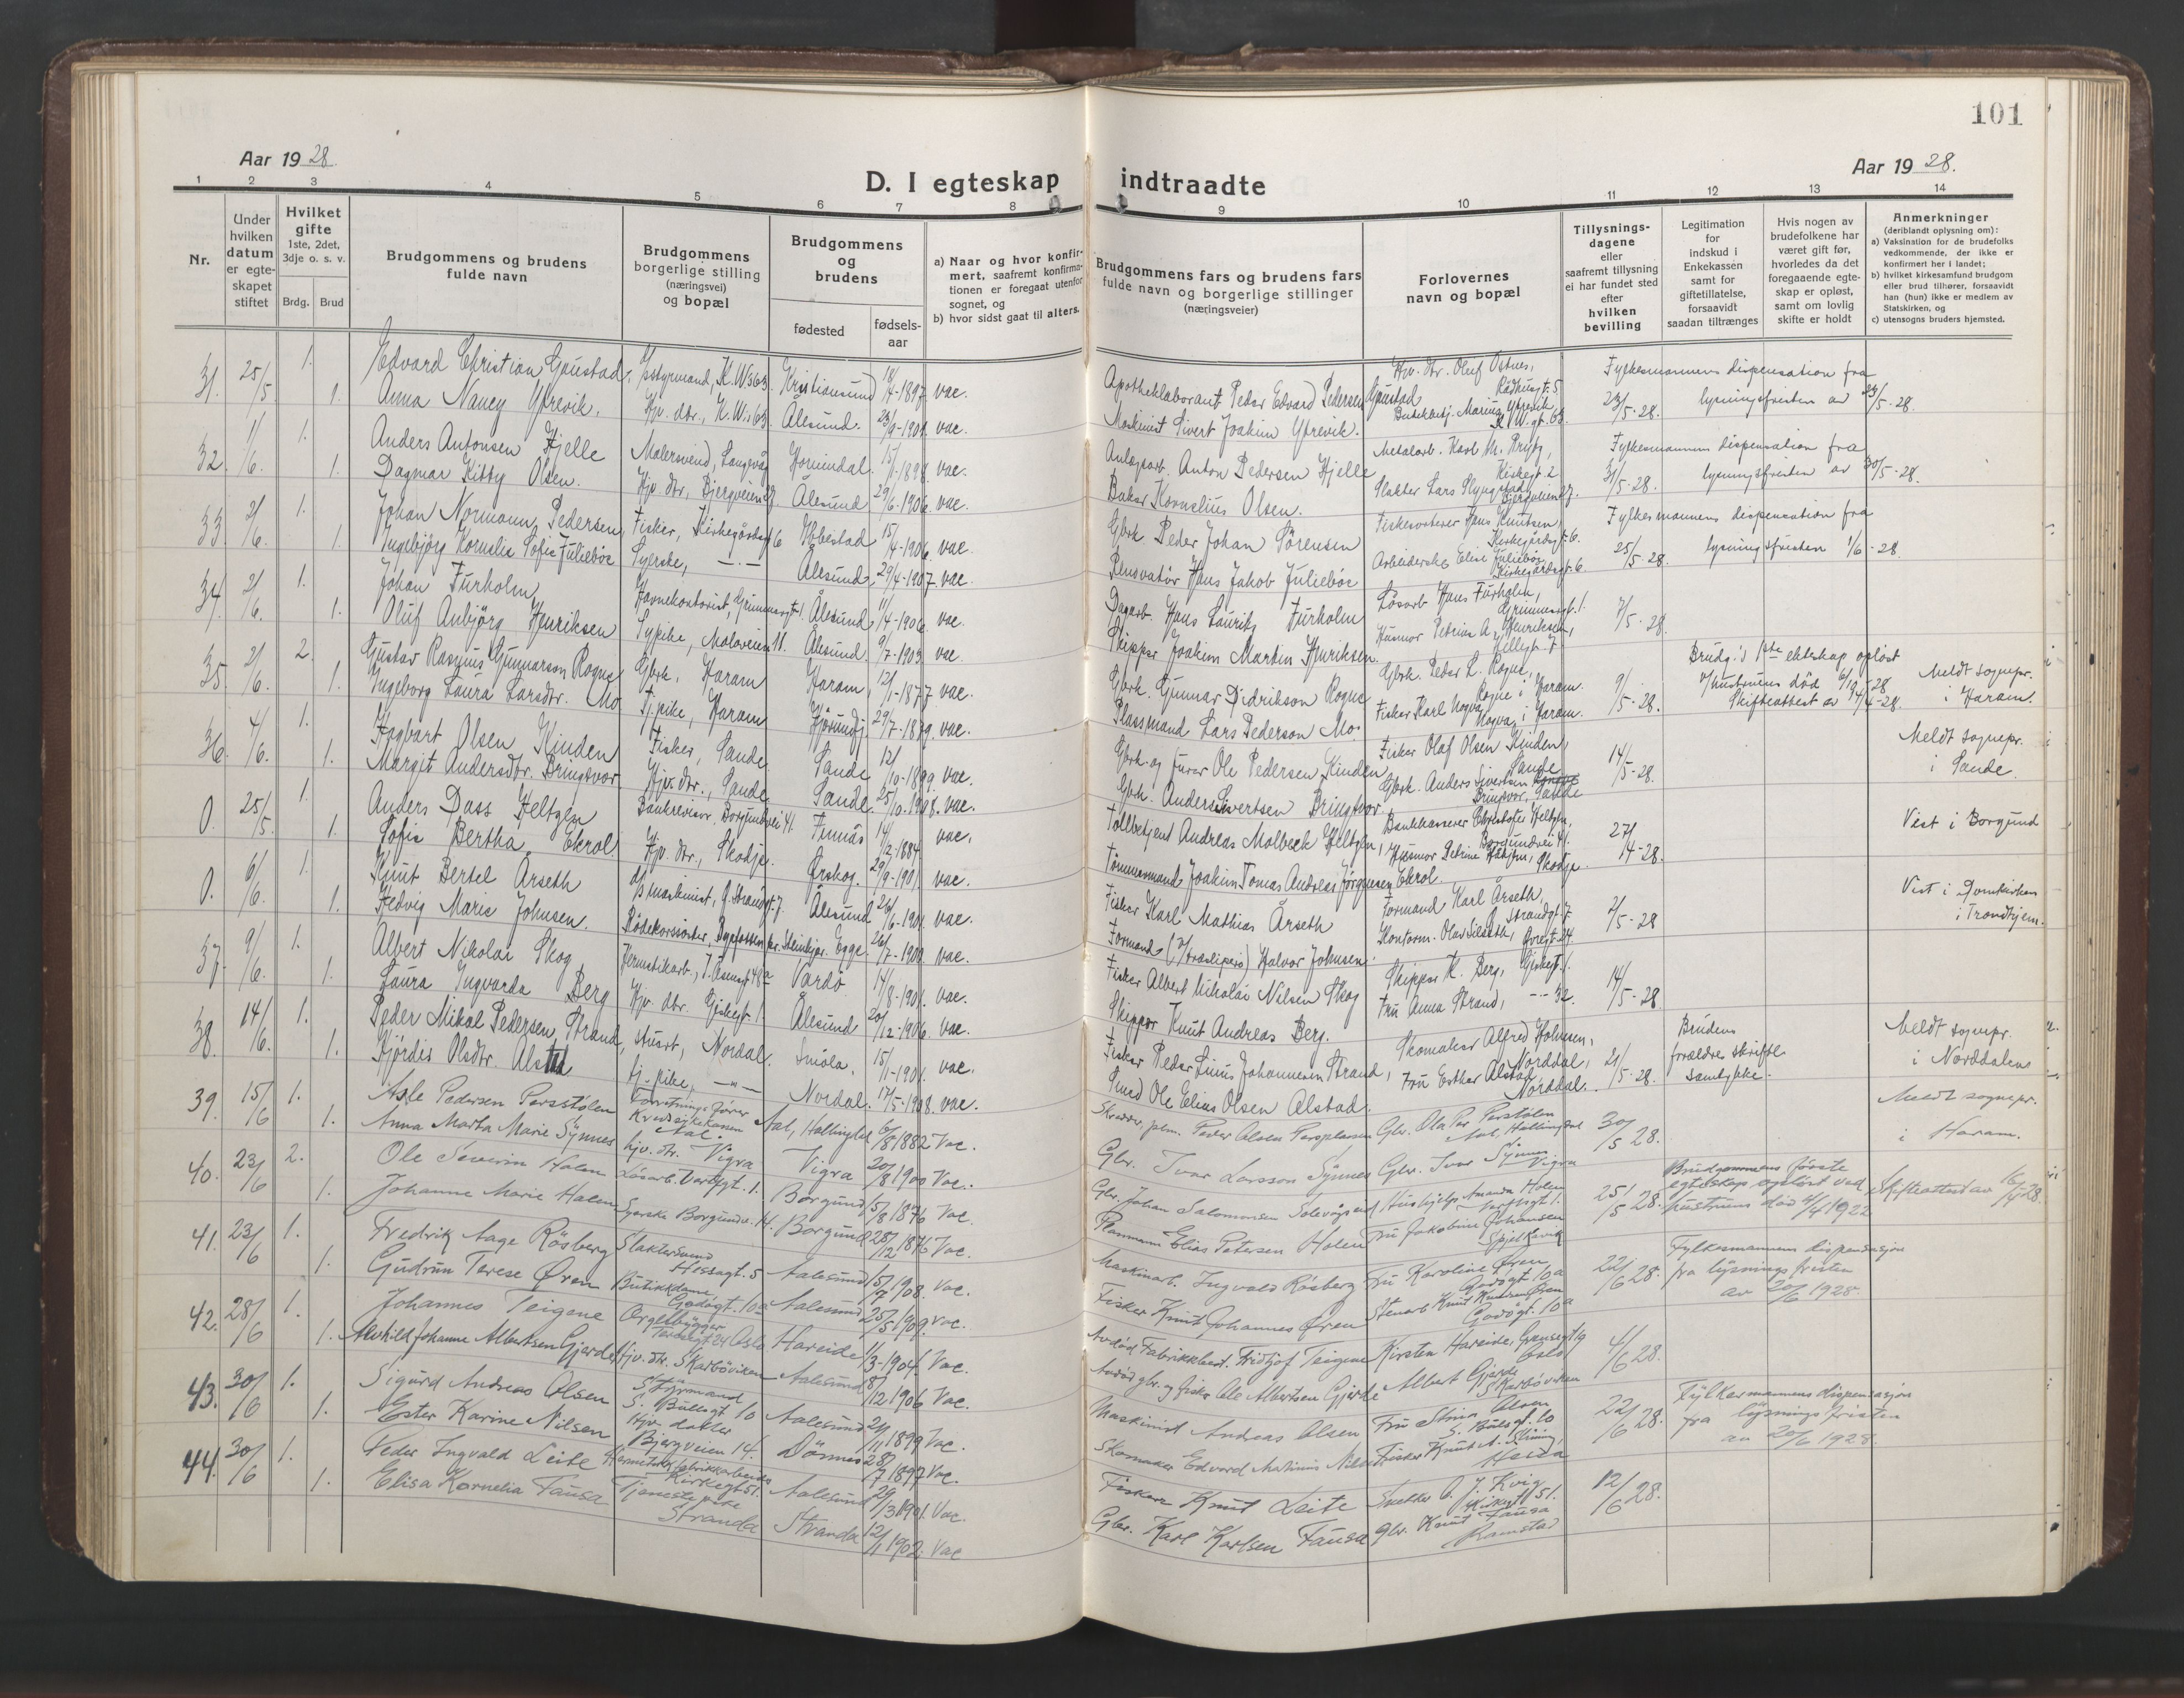 101
Aar 1928.
Aar 1928.
D. I egteskap indtraadte
1 2 3 4 5 6 7 8 9 10 11 12 13 14
Nr.
Under hvilken datum er egteskapet stiftet
Hvilket gifte 1ste, 2det, 3dje o. s. v.
Brdg. Brud
Brudgommens og brudens fulde navn
Brudgommens borgerlige stilling (næringsvei) og bopæl
Brudgommens og brudens
fødested
fødselsaar
a) Naar og hvor konfirmert, saafremt konfirmationen er foregaat utenfor sognet, og
b) hvor sidst gaat til alters.
Brudgommens fars og brudens fars fulde navn og borgerlige stillinger (næringsveier)
Forlovernes navn og bopæl
Tillysningsdagene eller saafremt tillysning ei har fundet sted efter hvilken bevilling
Legitimation for indskud i Enkekassen samt for giftetillatelse, forsaavidt saadan tiltrænges
Hvis nogen av brudefolkene har været gift før, hvorledes da det foregaaende egteskap er opløst, samt om lovlig skifte er holdt
Anmerkninger (deriblandt oplysning om):
a) Vaksination for de brudefolks vedkommende, der ikke er konfirmert her i landet;
b) hvilket kirkesamfund brudgom eller brud tilhører, forsaavidt han (hun) ikke er medlem av Statskirken, og
c) utensogns bruders hjemsted.
31. 25/5 1. Edvard Christian Gaustad, styrmand, K. W. 63 Kristiansund 18/4-1897 vac. Apotheklaborant Peder Edvard Pedersen Gaustad Hjv. dtr. Oluf Ostnes, Rådhusgt. 5 23/5-28. Fylkesmannens dispensation fra
1. Anna Nancy Ytrevik. Hjv. dtr., K. W. 63 Ålesund. 23/9-1901. vac. Maskinist Sivert Joakim Ytrevik. Marina Ytrevik K W. gt. 63 lysningsfristen av 23/5-28.
32. 1/6. 1. Anders Antonsen Hjelle Malersvend, Langevåg Hornindal. 15/1-1898. vac. Anlegsarb. Anton Pedersen Hjelle Metalarb. Karl M. Kirkegt. 2 31/5-28. Fylkesmannens dispensation fra
1. Dagmar Kitty Olsen. Hjv. dtr., Bjergveien 27 Ålesund 29/6-1906. vac. Baker Kornelius Olsen. Slakter Lars Slyngstad, Bjergveien 27. lysningsfristen av 30/5-28.
33. 2/6. 1. Johan Normann Pedersen, Fisker, Kirkegårdsgt 6 Ibbestad 15/4-1906. vac. Gbrk Peder Johan Sörensen Fiskesorterer Hans Knutsen, Kirkegårdsgt. 6. 25/5-28. Fylkesmannens dispensation fra
1. Ingebjörg Kornelia Sofie Juliebøe Syerske, -.- Ålesund 29/4-1907. vac. Renovatör Hans Jakob Juliebøe Arbeiderske Elise Juliebøe Kirkegårdsgt. 6. lysningsfristen 1/6-28.
34. 2/6. 1. Johan Furholm, Havnekontorist, Grimmersgt-1 Ålesund 11/4-1906. vac. Dagarb. Hans Lauritz Furholm Løsarb Hans Furholm, Grimmersgt. 1. 7/5-28.
1. Oluf Anbjörg Henriksen Sypike, Moloveien 11. Ålesund. 9/7-1903 vac Skipper Joakim Martin Henriksen. Husmor Petrine A. Henriksen, Hellegt. 7
35. 2/6. 2. Gustav Rasmus Gunnarson Rogne Gbrk, Haram Haram, 12/1-1877 vac. Gbrk. Gunnar Didrikson Rogne Gbrk. Peder L. Rogne, Rogne i Haram. 9/5-28. Brudg.'s 1ste ekteskap opløst Meldt sognepr.
1. Ingeborg Laura Larsdtr. Mo Tj. pike, Haram Hjørundfj. 29/7-1879. vac. Plassmand Lars Pederson Mo. Fisker Karl Nogva, Nogva i Haram. v/hustruens død Skifteattest av i Haram.
36. 4/6. 1. Hagbart Olsen Kinden Fisker, Sande Sande 12/10-1899. vac. Gbrk. og furer Ole Pedersen Kinden, Fisker Olaf Olsen Kinden, Sande 14/5-28. Meldt sognepr.
1. Margit Andersdtr. Bringsvor Hjv. dtr., Sande Sande. 25/10-1908. vac. Gbrk. Anders Sivertsen Bringsvor Gbrk. Anders Sivertsen Bringsvor, Sande i Sande.
0. 25/5. 1. Anders Dass Heltzen Bankrevisor, Borgundvei 41. Finnås 14/2-1884. vac. Tollbetjent Andreas Molbeck Heltzen, Bankkasserer Christofer Heltzen, Borgundvei 41. 27/4-28. Viet i Borgund
1. Sofie Bertha Ekrol Hjv. dtr., Skodje. Ørskog. 29/9-1901. vac. Tømmermand Joakim Tomas Andreas Jørgensen Ekrol. Husmor Petrine Skodje
0. 6/6. 1. Knut Bertel Årseth d/s maskinist, Ø. Strandgt. 7 Ålesund 24/6-1901. vac. Fisker Karl Mathias Årseth Formand Karl Årseth, Ø Strandgt. 7 2/5-28 Viet i Domkirken
1. Hedvig Marie Johnsen. Rödekorssöster, pr. Steinkjer. Egge. 26/7-1900. vac. Formand (v/træsliperi) Halvor Johnsen. Kontorm. Olav Silseth, Øvregt. 24. i Trondhjem.
37. 9/6. 1. Albert Nikolai Skog Hermetikarb., J. Aasensgt 48 a Vardö 14/8-1901. vac. Fisker Albert Nikolai Nilsen Skog Skipper K. Berg, Giskegt. 1. 14/5-28
1. Laura Ingvarda Berg Hjv. dtr. Giskegt 1 Ålesund 20/12-1906. vac. Skipper Knut Andreas Berg. Fru Anna Strand, -- 32.
38. 14/6. 1. Peder Mikal Pedersen Strand, stuert, Nordal. Smöla. 15/1-1901. vac. Fisker Peder Linus Johannesen Strand, Skomaker Alfred Holmen, Norddal, 21/5-28. Brudens forældres skriftl. samtykke. Meldt sognepr.
1. Hjördis Olsdtr. Alstad tj. pike, -"- Nordal. 17/5-1908. vac. Smed Ole Elias Olsen Alstad. Fru Esther Alstad Norddal. i Norddalene
39. 15/6 1. Asle Pedersen Perstölen Forretningsfører Kredsykekassen Aal. Aal, Hallingdal 6/8 1882 Vac. Peder Olsen Gbr. Ola Per Perstölen Aal, Hallingdal 30/5 28. Meldt sognepr.
1. Anna Marta Marie Synnes hjv. dtr. Vigra Vigra 20/8 1900 Vac. Gbr. Ivar Larsson Synnes Gbr. Ivar Synnes Vigra i Haram.
40. 23/6 2. Ole Severin Holen Løsarb. Varpgt. 1. Borgund 15/8 1876 Vac. Gbr. Johan Salomonsen Solevågseid Hushjelp Amanda Holen Varpgt 1. 25/5 28. Brudgommens første egteskap opløst ved hustruens död 4/4 1922 Skifteattest av 16/4-28.
1. Johanne Marie Holen Syerske Borgundv. 14. Borgund 28/12 1876 Vac. Elias Petersen Holen Fru Jakobine Johansen Spjelkavik
41. 23/6 1. Fredrik Aage Rösberg Slaktersvend Hessagt. 5 Aalesund 15/7 1908. Vac. Maskinarb. Ingvald Rösberg Fru Karoline Øren Godøgt 10a 22/6 28. Fylkesmannens dispensasjon
1. Gudrun Terese Øren Butikkdame Godøgt. 10a Aalesund 25/5 1909. Vac. Fisker Knut Johannes Øren Stenarb Knut Knutsen Øren Godøgt. 10a fra lysningsfristen av 20/6 1928.
42. 28/6 1. Johannes Teigene Orgelbygger Oslo Hareide 11/3-1904. Vac. Avdöd Fabrikkbest. Fridtjof Teigene Kirsten Hareide, Oslo 4/6 28.
1. Alvhild Johanne Albertsen Gjerde Hjv. dtr. Skarböviken Aalesund 18/12 1906 Vac. Avdöd gbr. og fisker Ole Albertsen Gjerde Albert Gjerde Skarböviken
43. 30/6 1. Sigurd Andreas Olsen Styrmand S. Bullsgt 10 Aalesund 21/11 1899 Vac. Maskinist Andreas Olsen Fru Stina Olsen S. Bulsgt. 10 22/6 28. Fylkesmannens dispensasjon
1. Ester Karine Nilsen Hjv. datter Bjergveien 14. Dönnes 28/7 1897 Vac. Skomaker Edvard Martinius Nilsen Fisker Knut A. Hessa fra lysningsfristen av 20/6 1928
44. 30/6 1. Peder Ingvald Leite Hermetikfabrikkarbeider Kirkegt 51. Aalesund 29/3 1901. Vac. Fisker Knut Leite Snekker O. J. Kvig Kirkegt 51. 12/6 28.
1. Elisa Kornelia Fausa Tjenestepike Stranda Stranda 12/1 1902. Vac Gbr. Karl Karlsen Fausa Gbr. Knut Fausa